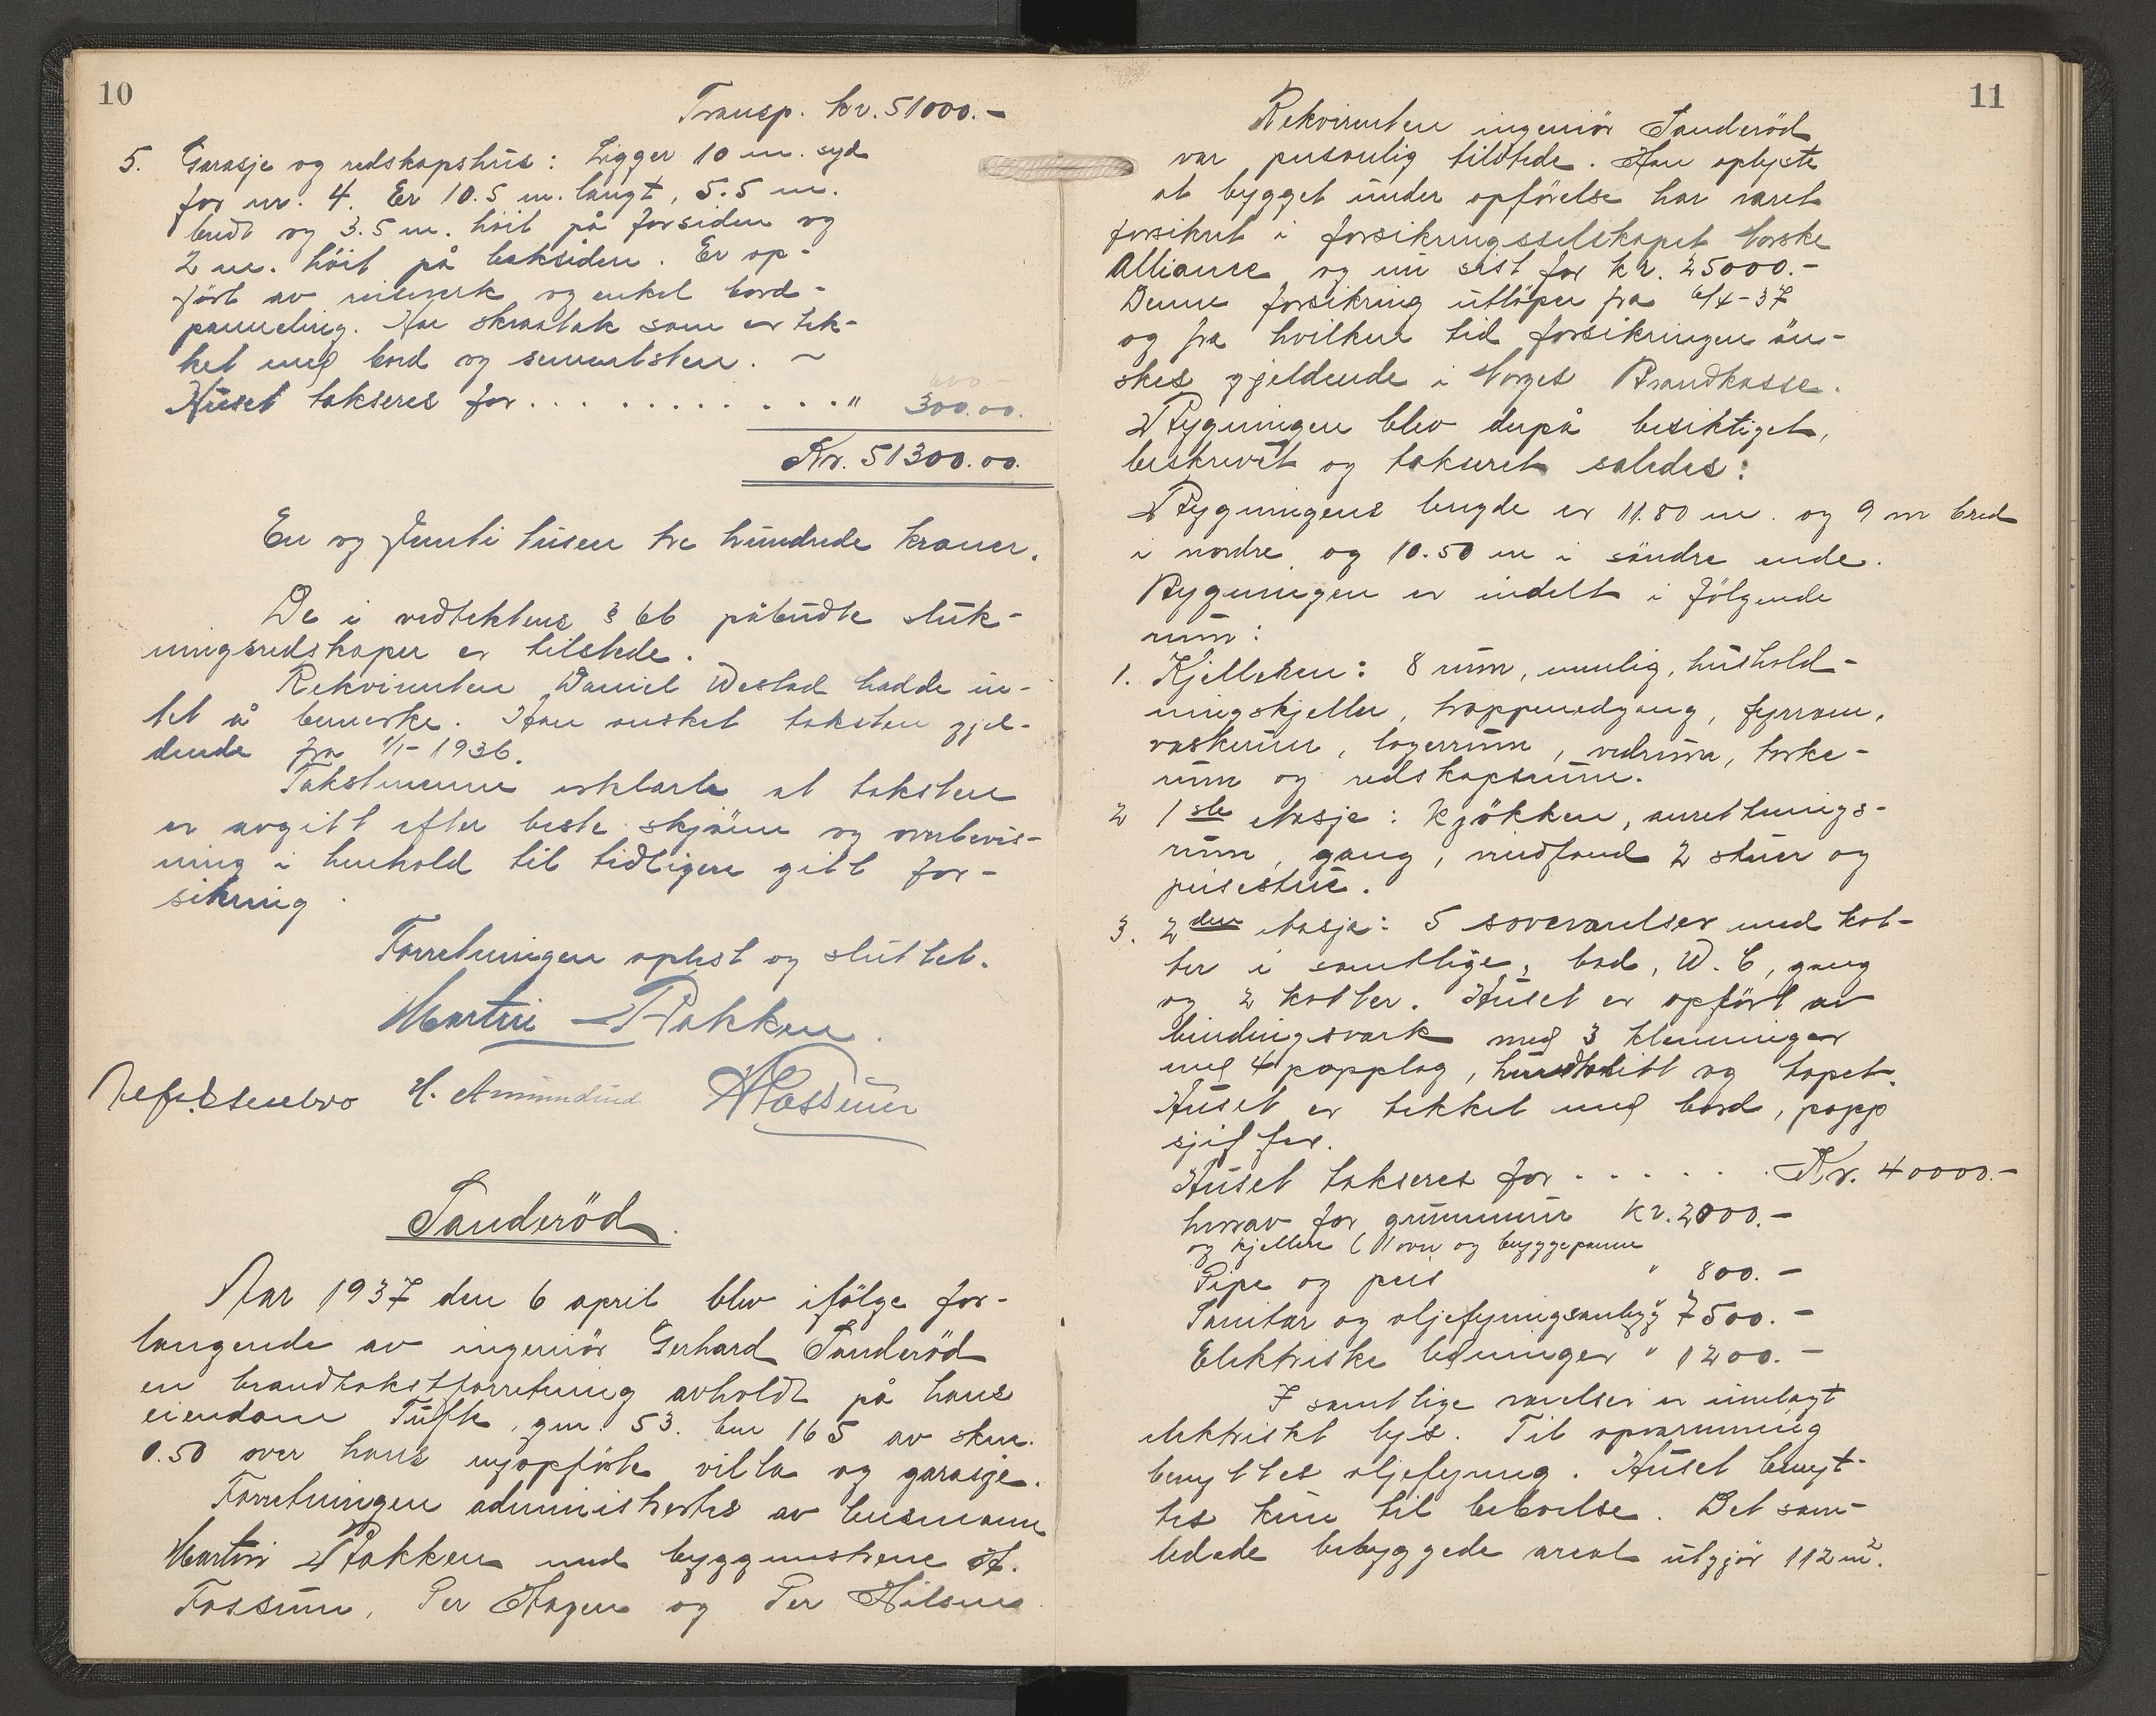 10
Transp. kr. 51000.-
5. Garasje og redskapshus: Ligger 10 m. syd
for nr. 4. Er 10.5 m. langt, 5.5 m.
bredt og 3.5 m. höit på forsiden og
2 m. höit på baksiden. Er op-
fört av reisverk og enkel bord-
panneling. Har skraatak som er tek-
ket med bord og sementsten. ~
Huset takseres for . . . . . . . . . . . . " 300.00.
Kr. 51300.00.
En og femti tusen tre hundrede kroner.
De i vedtektens § 66 påbudte sluk-
ningsredskaper er tilstede.
Rekvirenten Daniel Westad hadde in-
tet å bemerke. Han önsket taksten gjel-
dende fra 1/1-1936.
Takstmennene erklärte at taksten
er avgitt efter beste skjönn og overbevis-
ning i henhold til tidligere gitt for-
sikring.
Forretningen oplest og sluttet.
Martin Bakken.
H. Amundrud HFossum
Sanderöd.
Aar 1937 den 6 april blev ifölge for-
langende av ingeniör Gerhard Sanderöd
en brandtakstforretning avholdt på hans
eiendom Tufte, gnr. 53. bnr 165 av skm.
0.50 over hans nyopförte villa og garasje.
Forretningen administertes av lensmann
Martin Bakken med byggmestrene H.
Fossum, Per Hagen og Per Nilsen.
11
Rekvirenten ingeniör Sanderöd
var personlig tilstede. Han oplyste
at bygget under opförelse har väret
forsikret i forsikringsselskapet Norske
Alliance og nu sist for kr. 25000.-
Denne forsikring utlöper fra 6/4-37
og fra hvilken tid forsikringen ön-
skes gjeldende i Norges Brandkasse.
Bygningen blev derpå besiktiget,
beskrevet og taksert således:
Bygningens lengde er 11.80 m. og 9 m bred
i nordre og 10.50 m i söndre ende.
Bygningen er indelt i fölgende
rum:
1. Kjelleren: 8 rum, nemlig, hushold-
ningskjeller, trappenedgang, fyrrom,
vaskerum, lagerrum, vedrum, törke-
rum og redskapsrum.
2 1ste etasje: Kjökken, anretnings-
rum, gang, vindfand 2 stuer og
peisestue.
3. 2den etasje: 5 soververelser med kot-
ter i samtlige, bad, W. C, gang
og 2 kotter. Huset er opfört av
bindingsverk med 3 klemninger
med 4 papplag, huntonitt og tapet.
Huset er tekket med bord, papp
sjiffer.
Huset takseres for . . . . . . Kr. 40000.-
herav for grunnmur kr. 2000.-
og kjelleren ovn og bryggepanne
Pipe og peis " 800.-
Sanitär og oljefyringsanlegg " 7500.-
Elektriske ledninger " 1200.-
I samtlige värelser er innlagt
elektrisk lys. Til opvarmning
benyttes oljefyring. Huset benyt-
tes kun til beboelse. Det sam-
lede bebyggede areal utgjör 112 m².